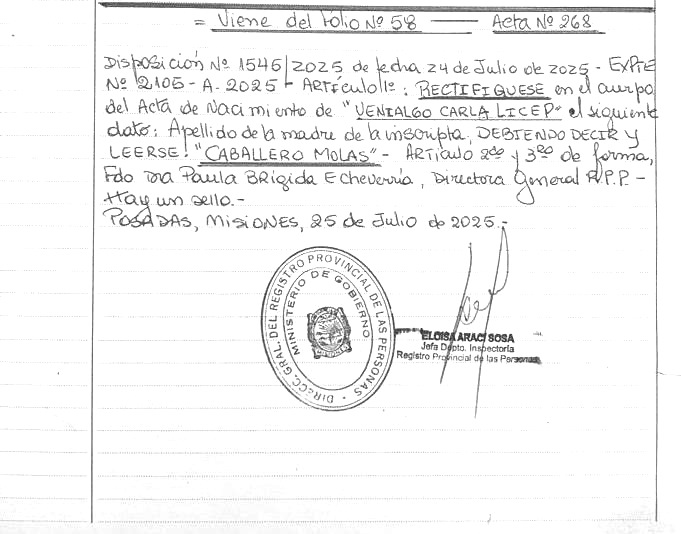 = Viene del Folio Nº 58 — Acta Nº 268
Disposición Nº 1545/2025 de fecha 24 de Julio de 2025 - EXPTE
Nº 2105 - A - 2025 - Artículo 1º: RECTIFIQUESE en el cuerpo
del Acta de Nacimiento de "VENIALGO CARLA LICEP" el siguiente
dato: Apellido de la madre de la inscripta, DEBIENDO DECIR y
LEERSE: "CABALLERO MOLAS" - ARTÍCULO 2do y 3ro de forma,
Fdo Dra Paula BRígida Echeverría, Directora General R.P.P. -
Hay un sello.-
POSADAS, MISIONES, 25 de Julio de 2025.-
DIRECC. GRAL. DEL REGISTRO PROVINCIAL DE LAS PERSONAS -
MINISTERIO DE GOBIERNO
ELOISA ARACI SOSA
Jefa Dpto. Inspectoría
Registro Provincial de las Personas